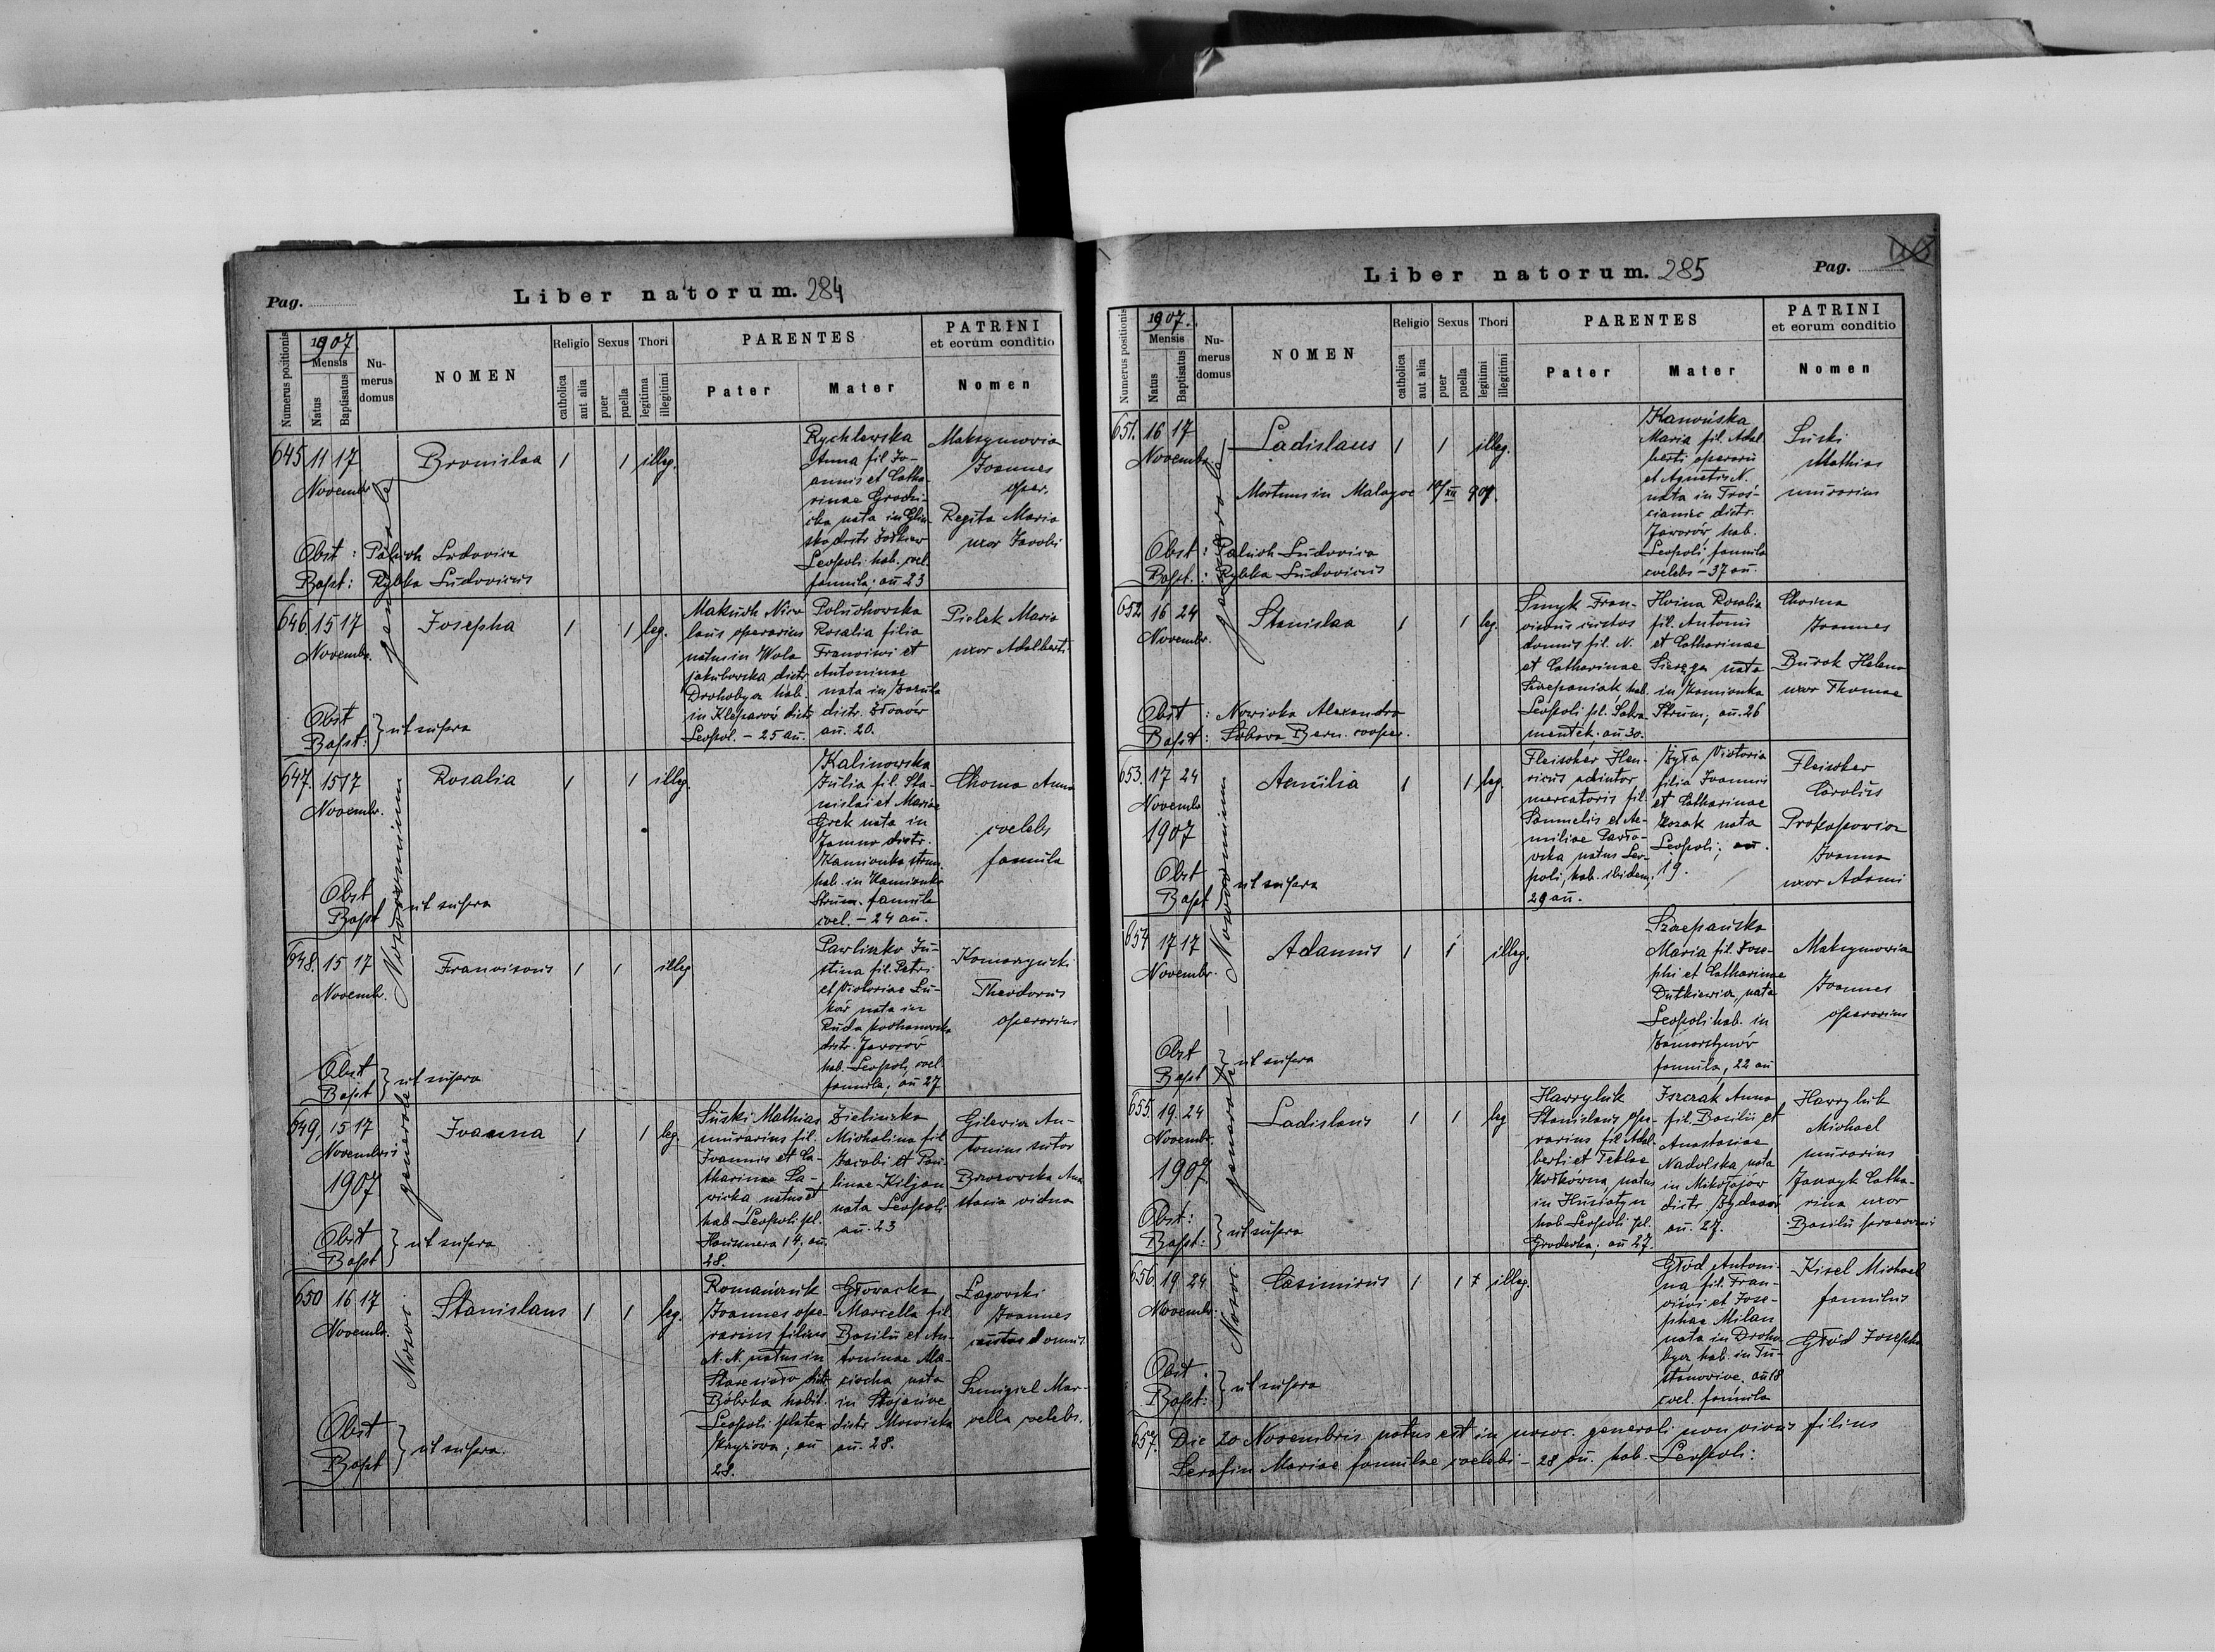 Pag.
Liber natorum. 284
Numerus positionis
1907
Mensis
Natus
Baptisatus
Nu-
merus
domus
NOMEN
Religio
catholica
aut alia
Sexus
puer
puella
Thori
legitima
illegitimi
PARENTES
Pater
Mater
PATRINI
et eorum conditio
Nomen
645 11 17
Novembr.
Bronislaa 1 1 illeg.
Rychlewska
Anna fil. Jo-
annis et Catha-
rinae Grodzi-
cka nata in Glin-
sko distr. Żołkiew
Leopoli hab. coel.
famula; an 23
Maksymowicz
Joannes
oper.
Regita Maria
uxor Jacobi
Obst: Paluch Ludovica
Bapt: Rybka Ludovicus
646 15 17
Novembr.
Josepha 1 1 leg.
Makuch Nico-
laus operarius
natus in Wola
jakubowska distr.
Drohobycz hab.
in Kleparów distr.
Leopol. - 25 an.
Poluchowska
Rosalia filia
Francisci et
Antoninae
nata in
distr. Złoczów
an. 20.
Pielek Maria
uxor Adalberti
Obst
Bapt: } ut supra
647. 15 17
Novembr.
Rosalia 1 1 illeg.
Kalinowska
Julia fil. Sta-
nislai et Mariae
Grek nata in
Jamno distr.
Kamionka strum.
hab. in Kamionka
Strum. famula
coel. - 24 an.
Choma Anna
coelebs
famula
Obst
Bapt } ut supra
648. 15 17
Novemb.
Franciscus 1 1 illeg
Pawliszko Ju-
stina fil. Petri
et Victoriae Lu-
kór nata in
Ruda kochanowska
distr. Jaworów
hab. Leopoli, coel.
famula; an 27
Komarzyński
Theodorus
operarius
Obst
Bapt } ut supra
649. 15 17
Novembris
1907
Joanna 1 1 leg.
Suski Mathias
murarius fil.
Joannis et Ca-
tharinae Sa-
wicka, natus et
hab Leopoli pl.
Hausnera 14; an.
28.
Zielinska
Michalina fil
Jacobi et Pau-
linae Kiljan
nata Leopoli
an. 23
Gilewicz An-
tonius sutor
Brzozowska Ana
stasia vidua
Obst
Bapt } ut supra
650 16 17
Novembr.
Stanislaus 1 1 leg.
Romańczuk
Joannes ope-
rarius filius
N. N. natus in
Staresioło distr
Bóbrka habit.
Leopoli platea
Kryżowa; an
28.
Głowacka
Marcella fil
Basilii et An-
toninae Ma-
ciocha nata
in Stojańce
distr Mościska
an. 28.
Łagowski
Joannes
custos domus
Szmigiel Mar-
cella coelebs.
Obst
Bapt } ut supra.
Nosocomium
generale
Nosoc.
Liber natorum. 285
Pag.
Numerus positionis
1907.
Mensis
Natus
Baptisatus
Nu-
merus
domus
NOMEN
Religio
catholica
aut alia
Sexus
puer
puella
Thori
legitimi
illegitimi
PARENTES
Pater
Mater
PATRINI
et eorum conditio
Nomen
651. 16 17
Novembr.
Ladislaus 1 1 illeg.
Mortuus in 10/XII 907.
Kanońska
Maria fil. Adal
berti operarii
et Agnetis N.
nata in Troś-
cianiec distr.
Jaworów, hab.
Leopoli, famula
coelebs - 37 an.
Suski
Mathias
murarius
Obst: Paluch Ludovica
Bapt.: Rybka Ludovicus
652 16 24
Novembr.
Stanislaa 1 1 leg.
Smyk Fran-
ciscus custos
domus fil. N.
et Catharinae
Szczepaniak, hab.
Leopoli pl. Sakra-
mentek; an 30.
Hoina Rosalia
fil. Antonii
et Catharinae
Sierżęga nata
in Kamionka
Strum; an. 26
Choina
Joannes
Burak Helena
uxor Thomae
Obst: Nowicka Alexandra
Bapt: Bern. cooper.
653. 17 24
Novembr
1907
Aemilia 1 1 leg.
Fleischer Hen-
ricus adiutor
mercatoris fil.
Samuelis et Ae-
miliae Pawło-
wska natus Leo-
poli, hab. ibidem;
29 an.
Żyła Victoria
filia Joannis
et Catharinae
Kozak nata
Leopoli; an.
19.
Fleischer
Carolus
Prokopowicz
Joanna
uxor Adami
Obst
Bapt } ut supra
654 17 17
Novembr.
Adamus 1 1 illeg.
Szczepańska
Maria fil. Jose-
phi et Catharinae
Dutkiewicz, nata
Leopoli hab. in
Zamarstynów
famula, 22 an
Maksymowicz
Joannes
operarius
Obst
Bapt } ut supra
655. 19. 24
Novembr.
1907
Ladislaus 1 1 leg
Hawryluk
Stanislaus ope-
rarius fil. Adal-
berti et Teklae
Kostkówna, natus
in Husiatyn
hab. Leopoli pl.
Grodecka; an 27.
Iszczak Anna
fil. Basilii et
Anastasiae
Nadolska nata
in Mikołajów
distr. Żydaczów
an. 27.
Hawryluk
Michael
murarius
Janczyk Catha-
rina uxor
Basilii
Obst:
Bapt: } ut supra
656 19 24
Novembr.
Casimirus 1 1 + illeg.
Głód Antoni-
na fil. Fran-
cisci et Jose-
phae Milan
nata in Droho
bycz hab. in Tu-
stanowice. an 18
coel. famula
Kisel Michael
famulus
Głód Josepha
Obst.
Bapt: } ut supra
657. Die 20 Novembris natus est in nosoc. generali non vivus filius
Serafin Mariae famulae coelebi - 28 an. hab. Leopoli:
Nosocomium
generale
Nosoc.